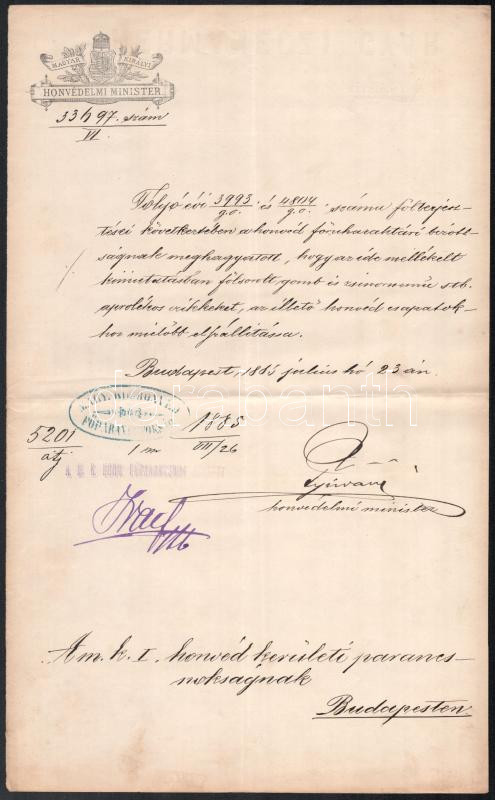 MAGYAR KIRÁLYI
HONVÉDELMI MINISTER
33497. szám
VI.
Folyó évi 3993/g.o. és 4804/g.o. számu fölterjesz-
tései következtében a honvéd főruharaktári bizott-
ságnak meghagyatott, hogy az ide mellékelt
kimutatásban fölsorolt gomb és zsinornemü stb.
aprólékos czikkeket, az illető honvéd csapatok-
hoz mielőbb elszállitassa.
Budapest, 1885 julius hó 23 án.
5201
átj
1 m
1885
VII/26
honvédelmi minister
A m. k. I. honvéd kerületi parancs-
nokságnak
Budapesten